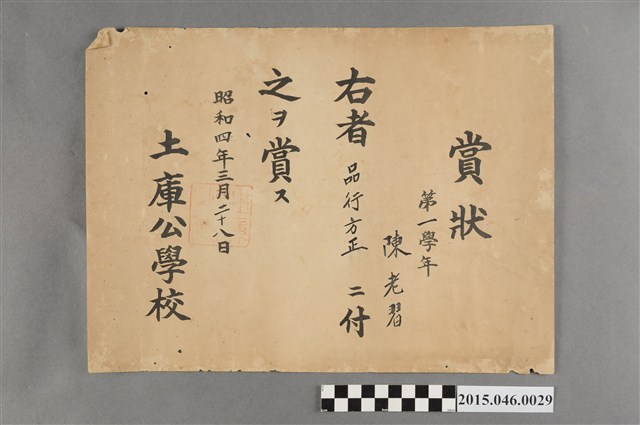 賞狀
第一學年
陳老習
右者品行方正ニ付
之ヲ賞ス
昭和四年三月二十八日
土庫公學校
2015.046.0029